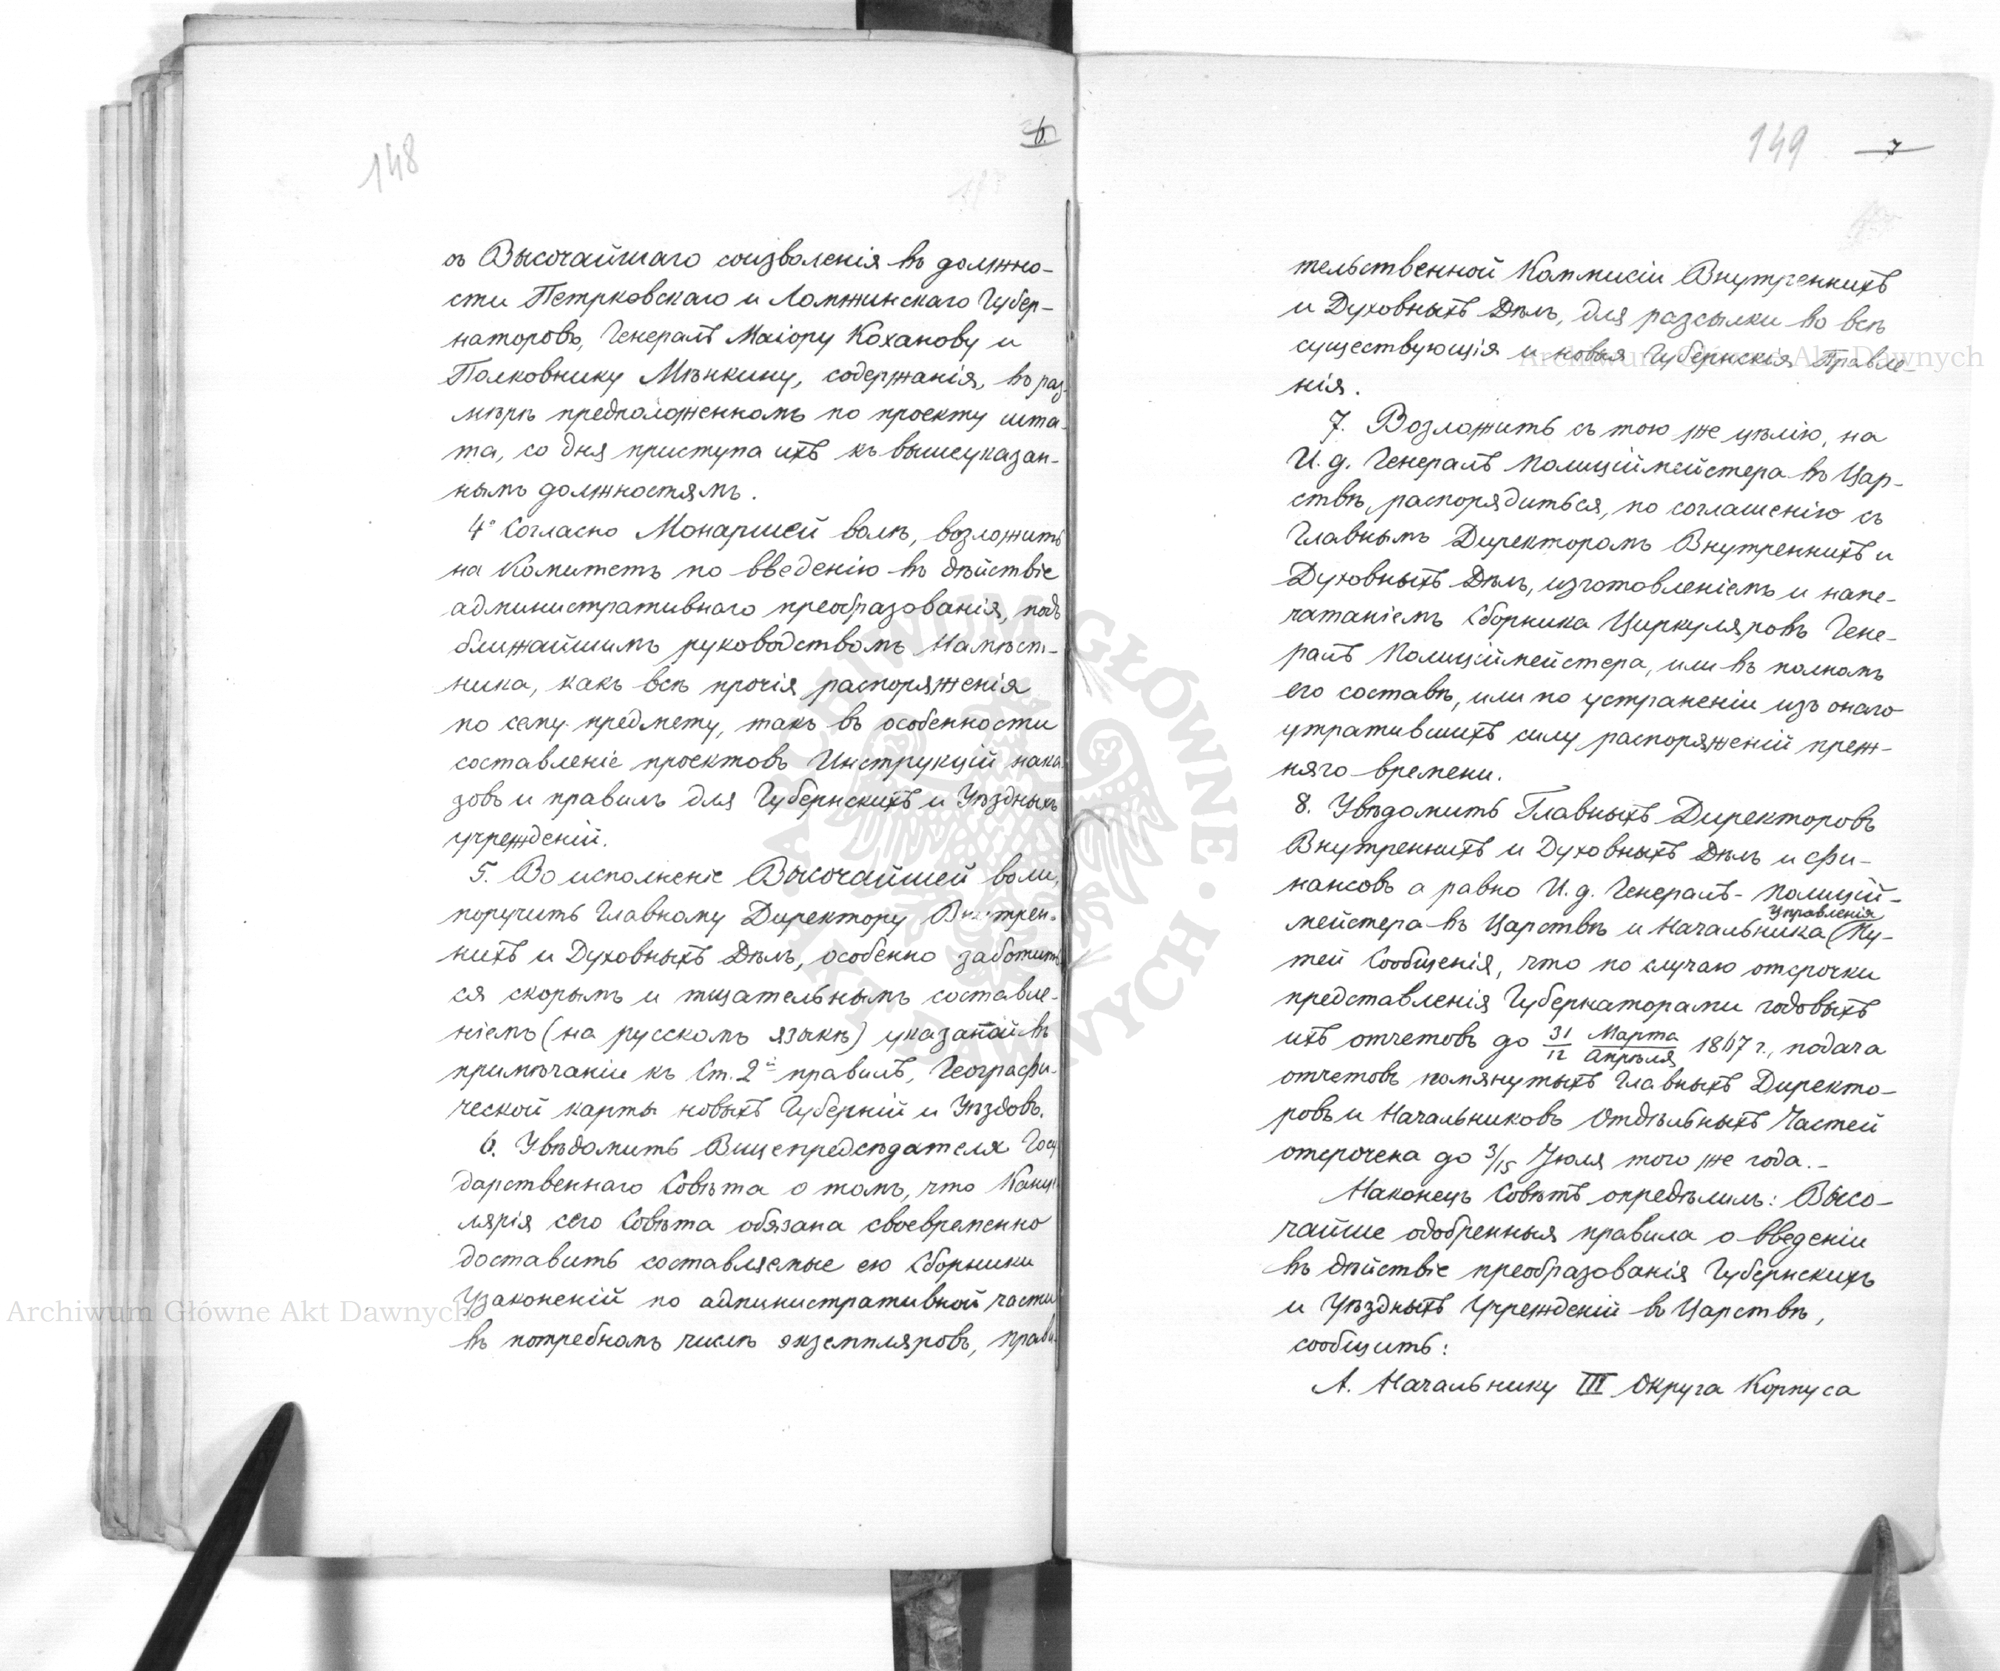 148
6.
съ Высочайшаго соизволенія въ должно-
сти Петрковскаго и Ломжинскаго Губер-
наторовъ, Генералъ Маіору Каханову и
Полковнику Мѣнкину, содержанія, въ раз-
мѣрѣ предположенномъ по проекту шта-
та, со дня приступа ихъ къ вышеуказан-
нымъ должностямъ.
4° Согласно Монаршей волѣ, возложить
на Комитетъ по введенію въ дѣйствіе
административнаго преобразованія, подъ
ближайшимъ руководствомъ Намѣст-
ника, какъ всѣ прочія распоряженія
по сему предмету, такъ въ особенности
составленіе проектовъ Инструкцій нака
зовъ и правилъ для Губернскихъ и Уѣздныхъ
учрежденій.
5. Во исполненіе Высочайшей воли,
поручить Главному Директору Внутрен-
нихъ и Духовныхъ Дѣлъ, особенно заботить
ся скорымъ и тщательнымъ составле-
ніемъ (на русскомъ языкѣ) указанной въ
примѣчаніи къ Ст. 2й правилъ, Географи-
ческой карты новыхъ Губерній и Уѣздовъ.
6. Увѣдомить Вицепредсѣдателя Госу
дарственнаго Совѣта о томъ, что Канце
лярія сего Совѣта обязана своевременно
доставить составляемые ею Сборники
Узаконеній по административной части
въ потребномъ числѣ экземпляровъ, Прави-
149
7
тельственной Коммисіи Внутреннихъ
и Духовныхъ Дѣлъ, для разсылки во всѣ
существующія и новыя Губернскія Правле-
нія.
7. Возложить съ тою же цѣлію, на
И. д. Генералъ Полиціймейстера въ Цар-
ствѣ, распорядиться, по соглашенію съ
Главнымъ Директоромъ Внутреннихъ и
Духовныхъ Дѣлъ, изготовленіемъ и напе-
чатаніемъ Сборника Циркуляровъ Гене-
ралъ Полиціймейстера, или въ полномъ
его составѣ, или по устраненіи изъ онаго
утратившихъ силу распоряженій преж-
няго времени.
8. Увѣдомить Главныхъ Директоровъ
Внутреннихъ и Духовныхъ Дѣлъ и Фи-
нансовъ а равно И. д. Генералъ-Полицій-
мейстера въ Царствѣ и Начальника (Управленія Пу-
тей Сообщенія, что по случаю отсрочки
представленія Губернаторами годовыхъ
ихъ отчетовъ до 31/12 Марта/Апрѣля 1867 г., подача
отчетовъ помянутыхъ Главныхъ Директо-
ровъ и Начальниковъ Отдѣльныхъ Частей
отсрочена до 3/15 Іюля того же года.-
Наконецъ Совѣтъ опредѣлилъ: Высо-
чайше одобренныя правила о введеніи
въ дѣйствіе преобразованія Губернскихъ
и Уѣздныхъ Учрежденій въ Царствѣ,
сообщить:
А. Начальнику III Округа Корпуса
Archiwum Główne Akt Dawnych
Archiwum Główne Akt Dawnych
ARCHIWUM GŁÓWNE · AKT DAWNYCH ·